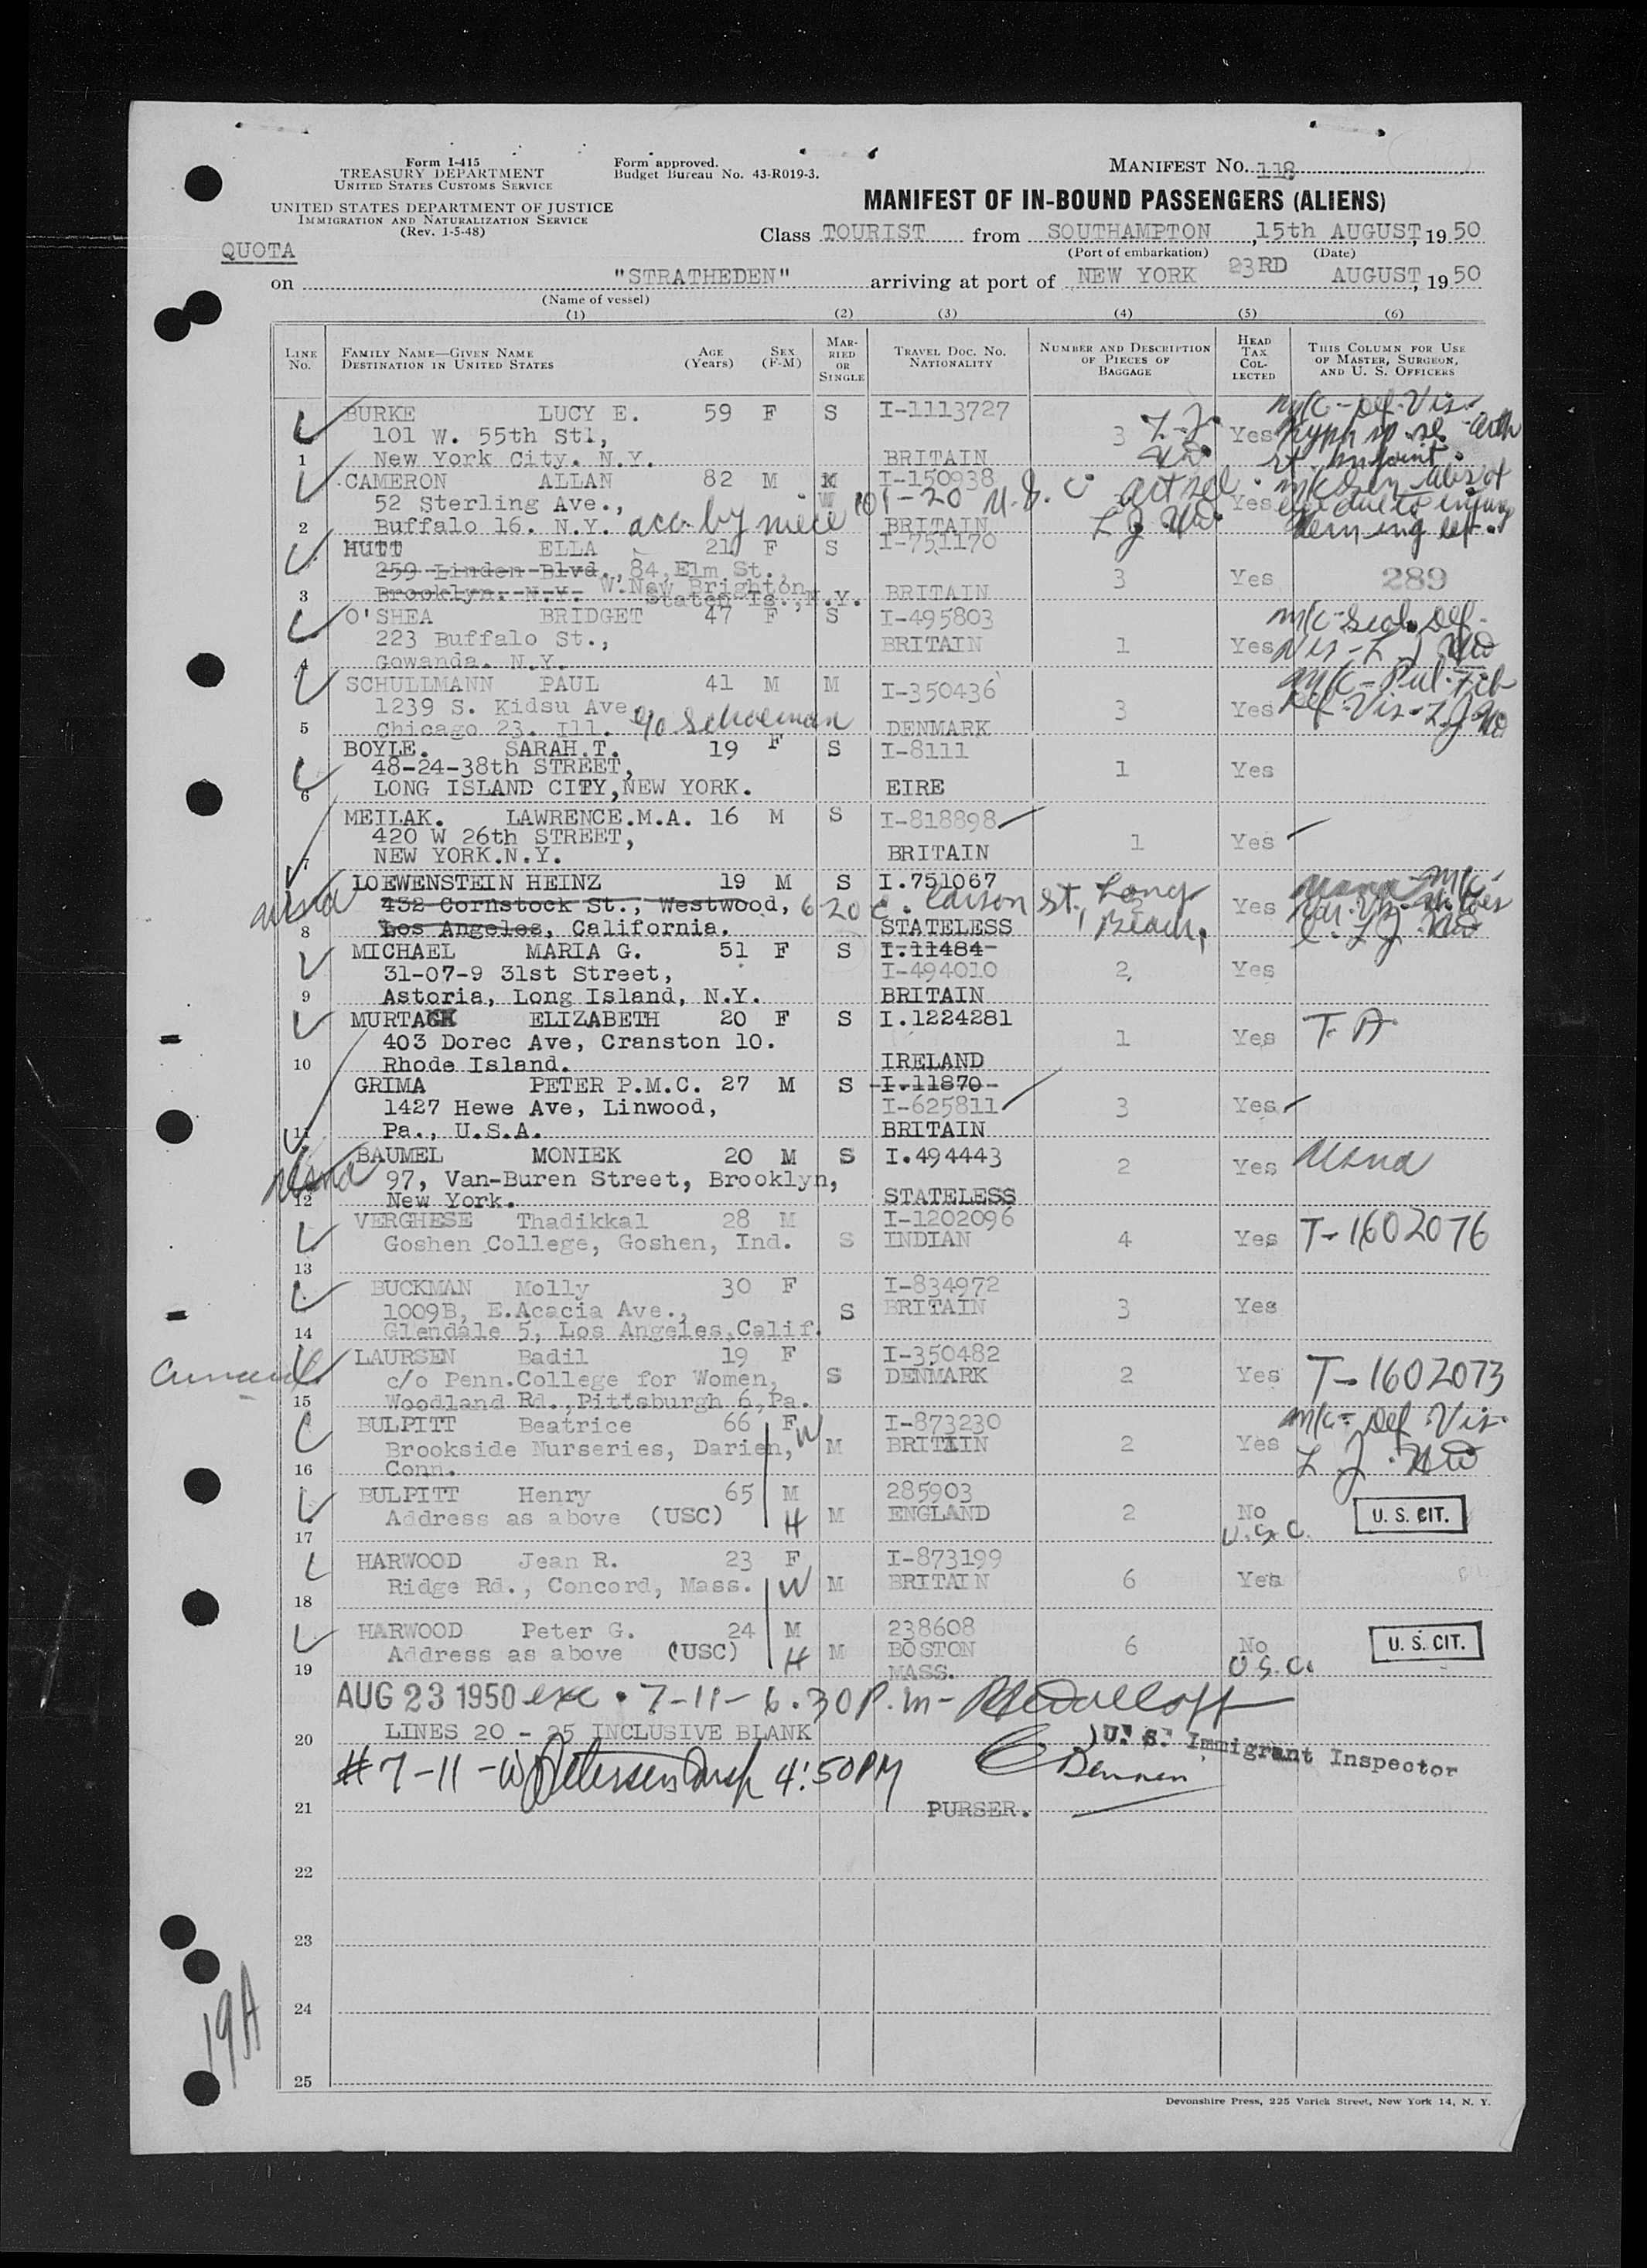 Form I-415
TREASURY DEPARTMENT
UNITED STATES CUSTOMS SERVICE
Form approved.
Budget Bureau No. 43-R019-3.
MANIFEST No. 118
UNITED STATES DEPARTMENT OF JUSTICE
IMMIGRATION AND NATURALIZATION SERVICE
(Rev. 1-5-48)
MANIFEST OF IN-BOUND PASSENGERS (ALIENS)
QUOTA
Class TOURIST from SOUTHAMPTON, 15th AUGUST, 1950
(Port of embarkation) (Date)
on "STRATHEDEN" arriving at port of NEW YORK 23RD AUGUST, 1950
(Name of vessel)
(1) (2) (3) (4) (5) (6)
LINE No. FAMILY NAME—GIVEN NAME DESTINATION IN UNITED STATES AGE (Years) SEX (F-M) MARRIED OR SINGLE TRAVEL DOC. No. NATIONALITY NUMBER AND DESCRIPTION OF PIECES OF BAGGAGE HEAD TAX COLLECTED THIS COLUMN FOR USE OF MASTER, SURGEON, AND U. S. OFFICERS
BURKE LUCY E. 59 F S I-1113727 m/c - Def. Vis.
101 W. 55th St1, 3 Yes
1 New York City. N.Y. BRITAIN
CAMERON ALLAN 82 M M I-150938
52 Sterling Ave., W Yes eye due to injury
2 Buffalo 16. N.Y. acc. by niece 101-20 U.S.C. BRITAIN
HUTT ELLA 21 F S I-751170
259 Linden Blvd., 84, Elm St., 3 Yes 289
3 Brooklyn. N.Y. W.New Brighton Staten Is., N.Y. BRITAIN
O'SHEA BRIDGET 47 F S I-495803 m/c - Def.
223 Buffalo St., BRITAIN 1 Yes Vis -
4 Gowanda. N.Y.
SCHULLMANN PAUL 41 M M I-350436 m/c - Pul. Tcb
1239 S. Kidsu Ave 3 Yes Def. Vis -
5 Chicago 23. Ill. c/o Schoeman DENMARK
BOYLE. SARAH.T. 19 F S I-8111
48-24-38th STREET, 1 Yes
6 LONG ISLAND CITY, NEW YORK. EIRE
MEILAK. LAWRENCE.M.A. 16 M S I-818898
420 W 26th STREET, 1 Yes
7 NEW YORK.N.Y. BRITAIN
LOEWENSTEIN HEINZ 19 M S I.751067
432 Cornstock St., Westwood, 620 E. Carson St. Long Beach, Yes
8 Los Angeles, California. STATELESS
MICHAEL MARIA G. 51 F S I.11484
31-07-9 31st Street, I-494010 2, Yes
9 Astoria, Long Island, N.Y. BRITAIN
MURTAGH ELIZABETH 20 F S I.1224281 T. A
403 Dorec Ave, Cranston 10. 1 Yes
10 Rhode Island. IRELAND
GRIMA PETER P.M.C. 27 M S I-11870
1427 Hewe Ave, Linwood, I-625811 3 Yes
11 Pa., U.S.A. BRITAIN
BAUMEL MONIEK 20 M S I.494443 2 Yes usna
97, Van-Buren Street, Brooklyn,
12 New York. STATELESS
VERGHESE Thadikkal 28 M I-1202096
Goshen College, Goshen, Ind. S INDIAN 4 Yes T-1602076
13
BUCKMAN Molly 30 F I-834972
1009B, E.Acacia Ave., S BRITAIN 3 Yes
14 Glendale 5, Los Angeles, Calif.
LAURSEN Badil 19 F I-350482
c/o Penn.College for Women, S DENMARK 2 Yes T-1602073
15 Woodland Rd., Pittsburgh 6, Pa.
BULPITT Beatrice 66 F W I-873230 m/c - Def. Vis.
Brookside Nurseries, Darien, M BRITAIN 2 Yes
16 Conn.
BULPITT Henry 65 M 285903
Address as above (USC) H M ENGLAND 2 No U.S.C. U. S. CIT.
17
HARWOOD Jean R. 23 F I-873199
Ridge Rd., Concord, Mass. W M BRITAIN 6 Yes
18
HARWOOD Peter G. 24 M 238608
Address as above (USC) H M BOSTON 6 No U.S.C. U. S. CIT.
19 MASS.
AUG 23 1950 exc. 7-11 - 6.30 P.m -
20 LINES 20 - 25 INCLUSIVE BLANK U. S. Immigrant Inspector
# 7-11 - Insp 4:50 PM
21 PURSER.
22
23
24
25
19A
Devonshire Press, 225 Varick Street, New York 14, N. Y.